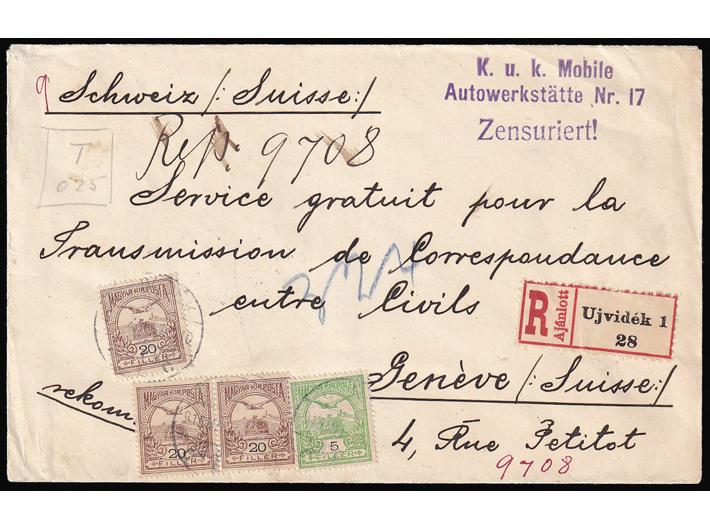 K. u. k. Mobile
Autowerkstätte Nr. 17
Zensuriert!
Schweiz /: Suisse :/
Rep. 9708
T
025
Service gratuit pour la
Transmission de Correspondance
entre Civils
R Ajánlott Ujvidék 1
28
MAGYAR KIR. POSTA
20
FILLÉR
rekom.
Genève /Suisse:/
MAGYAR KIR. POSTA
20
FILLÉR
MAGYAR KIR. POSTA
20
FILLÉR
MAGYAR KIR. POSTA
5
FILLÉR
4, Rue Petitot
9708